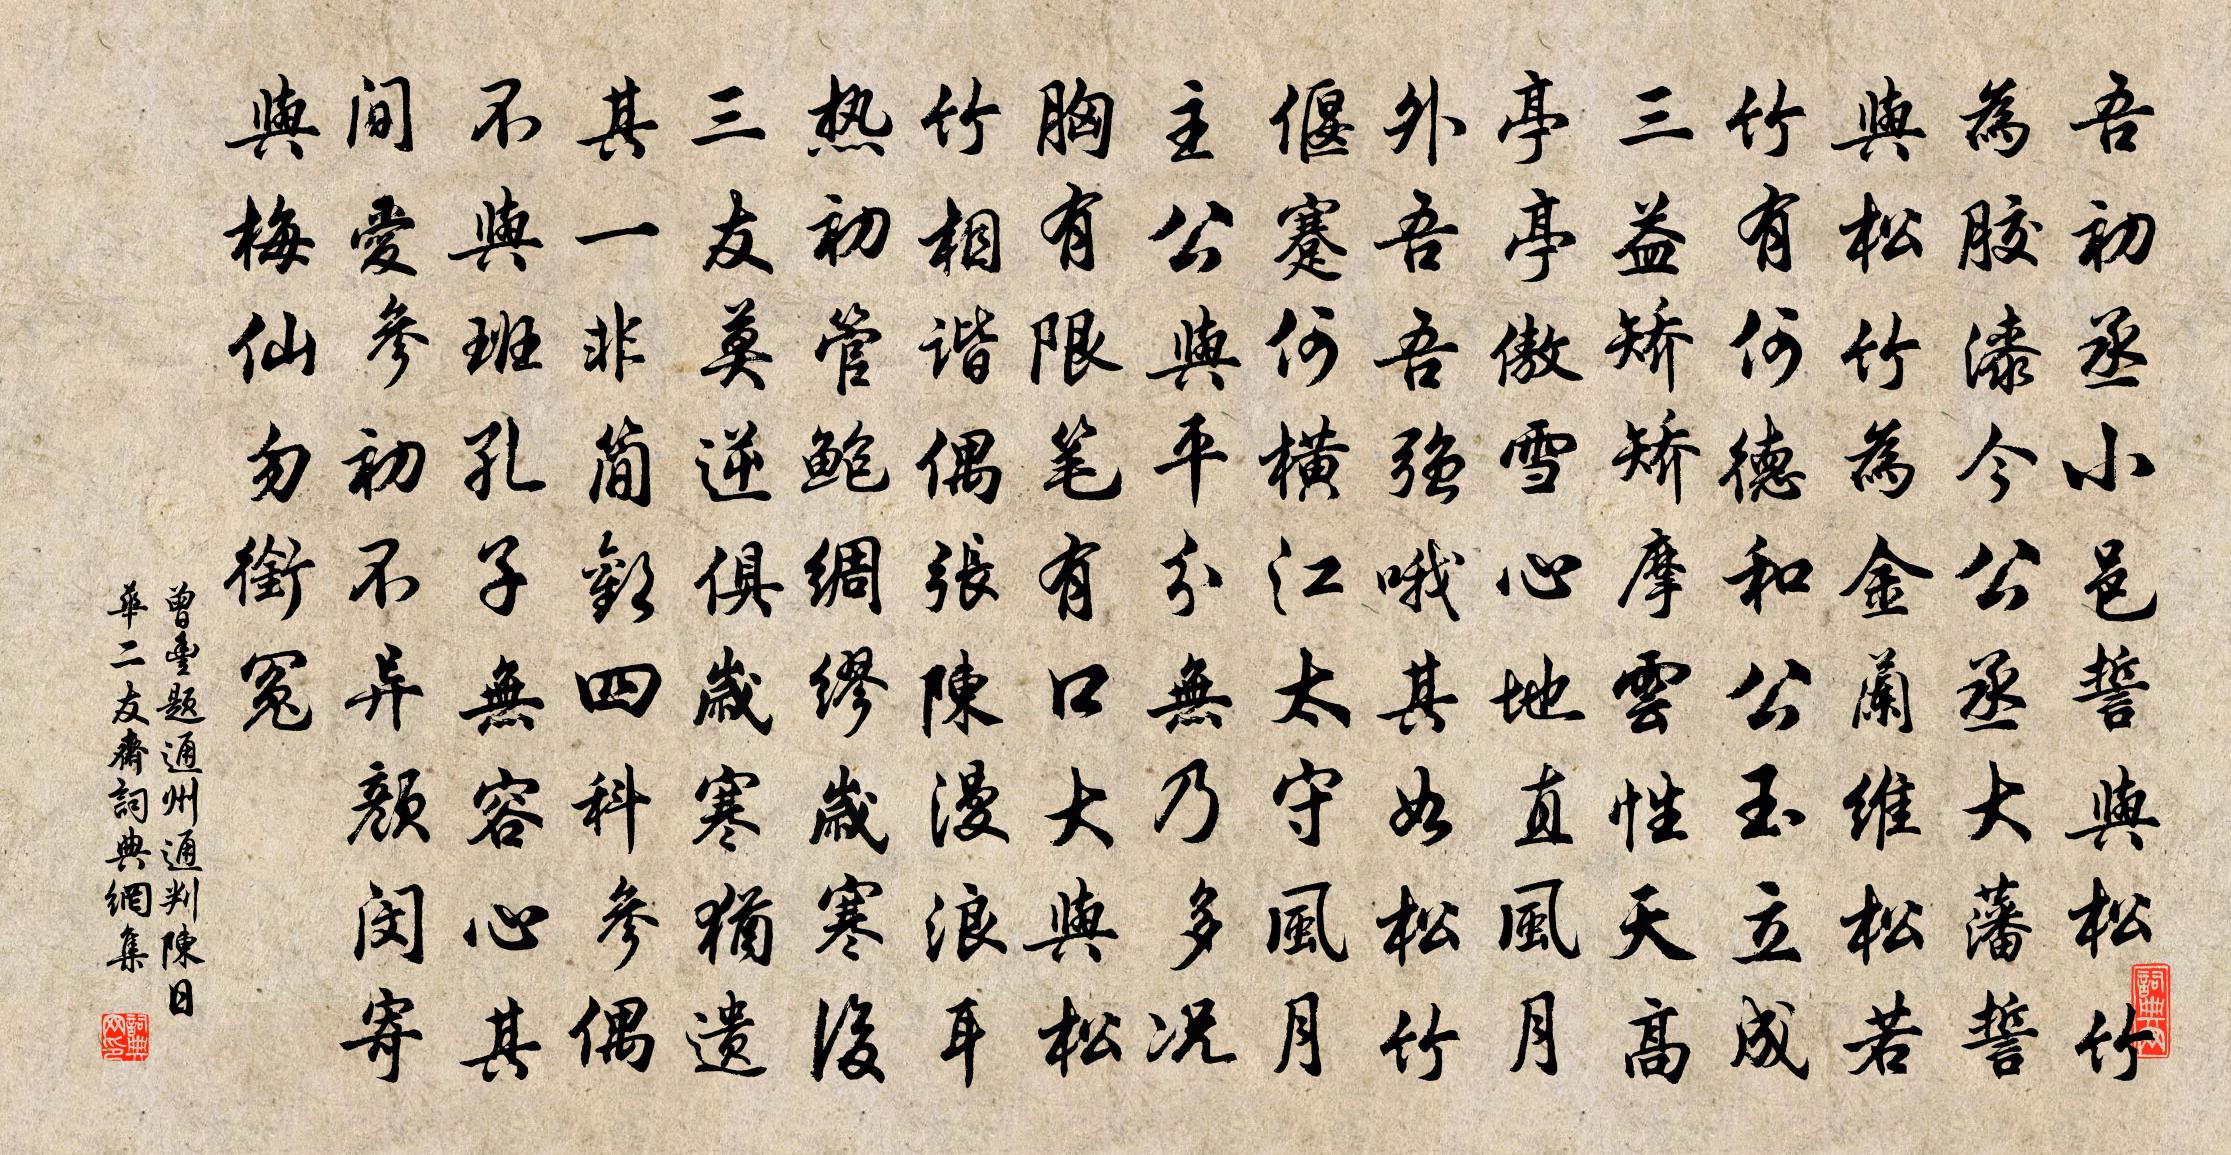 吾初丞小邑誓與松竹
為膠漆今公丞大藩誓
與松竹為金蘭維松若
竹有何德和公玉立成
三益矫矫摩雲性天高
亭亭傲雪心地直風月
外吾吾强哦其如松竹
偃蹇何橫江太守風月
主公與平分無乃多况
胸有限笔有口大與松
竹相谐偶張陳漫浪耳
热初管鲍綢缪歲寒後
三友莫逆俱歲寒猶遗
其一非简勸四科參偶
不與班孔子無容心其
间愛參初不异颜闵寄
與梅仙勿銜冤
曾豐題通州通判陳日
華二友齋詞典網集
詞典网
詞典网印